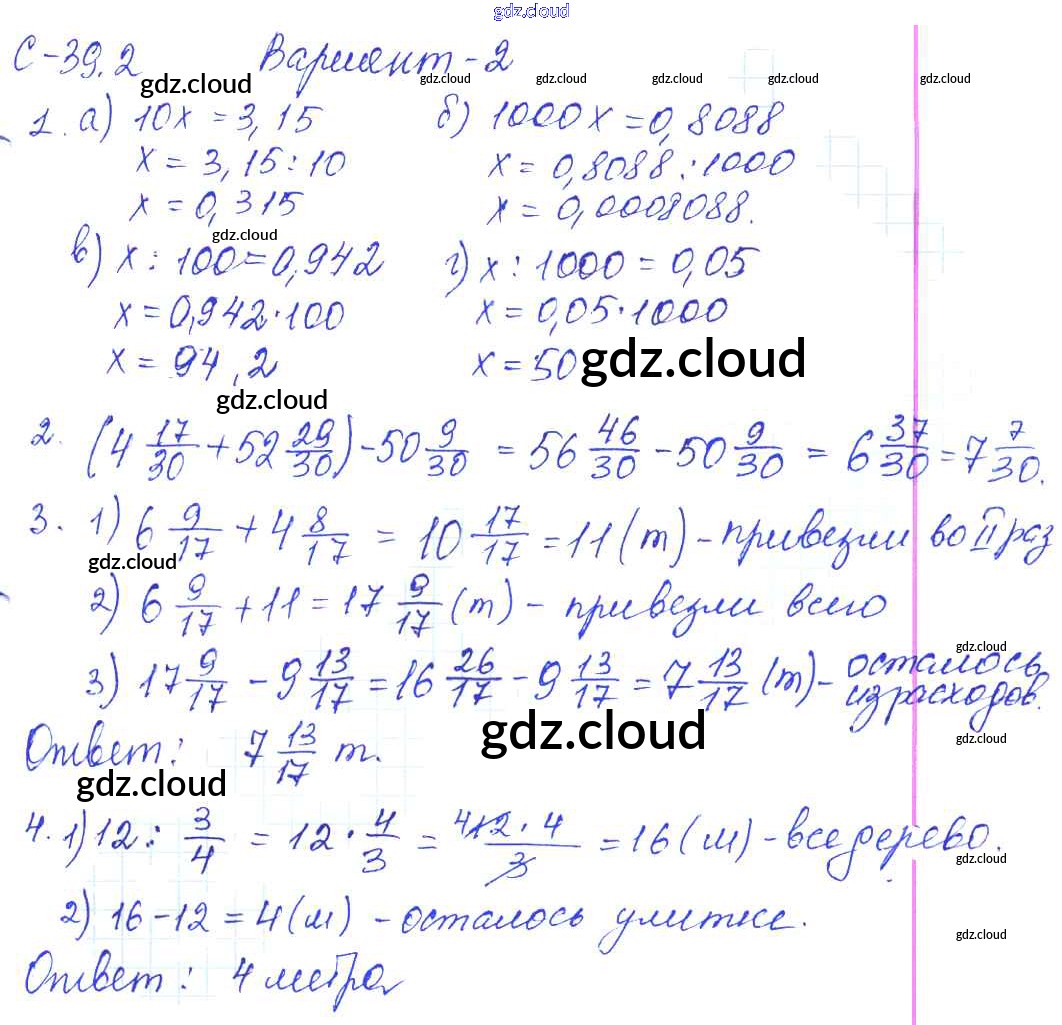 gdz.cloud
С-39.2 Вариант-2
gdz.cloud gdz.cloud gdz.cloud gdz.cloud gdz.cloud gdz.cloud
1. а) 10x = 3,15 б) 1000x = 0,8088
x = 3,15 : 10 x = 0,8088 : 1000
x = 0,315 x = 0,0008088.
gdz.cloud
в) x : 100 = 0,942 г) x : 1000 = 0,05
x = 0,942 · 100 x = 0,05 · 1000
x = 94,2 x = 50
gdz.cloud
gdz.cloud
2. (4 17/30 + 52 29/30) - 50 9/30 = 56 46/30 - 50 9/30 = 6 37/30 = 7 7/30.
3. 1) 6 9/17 + 4 8/17 = 10 17/17 = 11 (т) - привезли во II раз
gdz.cloud
2) 6 9/17 + 11 = 17 9/17 (т) - привезли всего
gdz.cloud
3) 17 9/17 - 9 13/17 = 16 26/17 - 9 13/17 = 7 13/17 (т) - осталось
израсходов.
gdz.cloud
gdz.cloud
Ответ: 7 13/17 т.
gdz.cloud
4. 1) 12 : 3/4 = 12 · 4/3 = 4 12 · 4/3 = 16 (м) - все дерево.
gdz.cloud
2) 16 - 12 = 4 (м) - осталось улитке.
gdz.cloud
Ответ: 4 метра